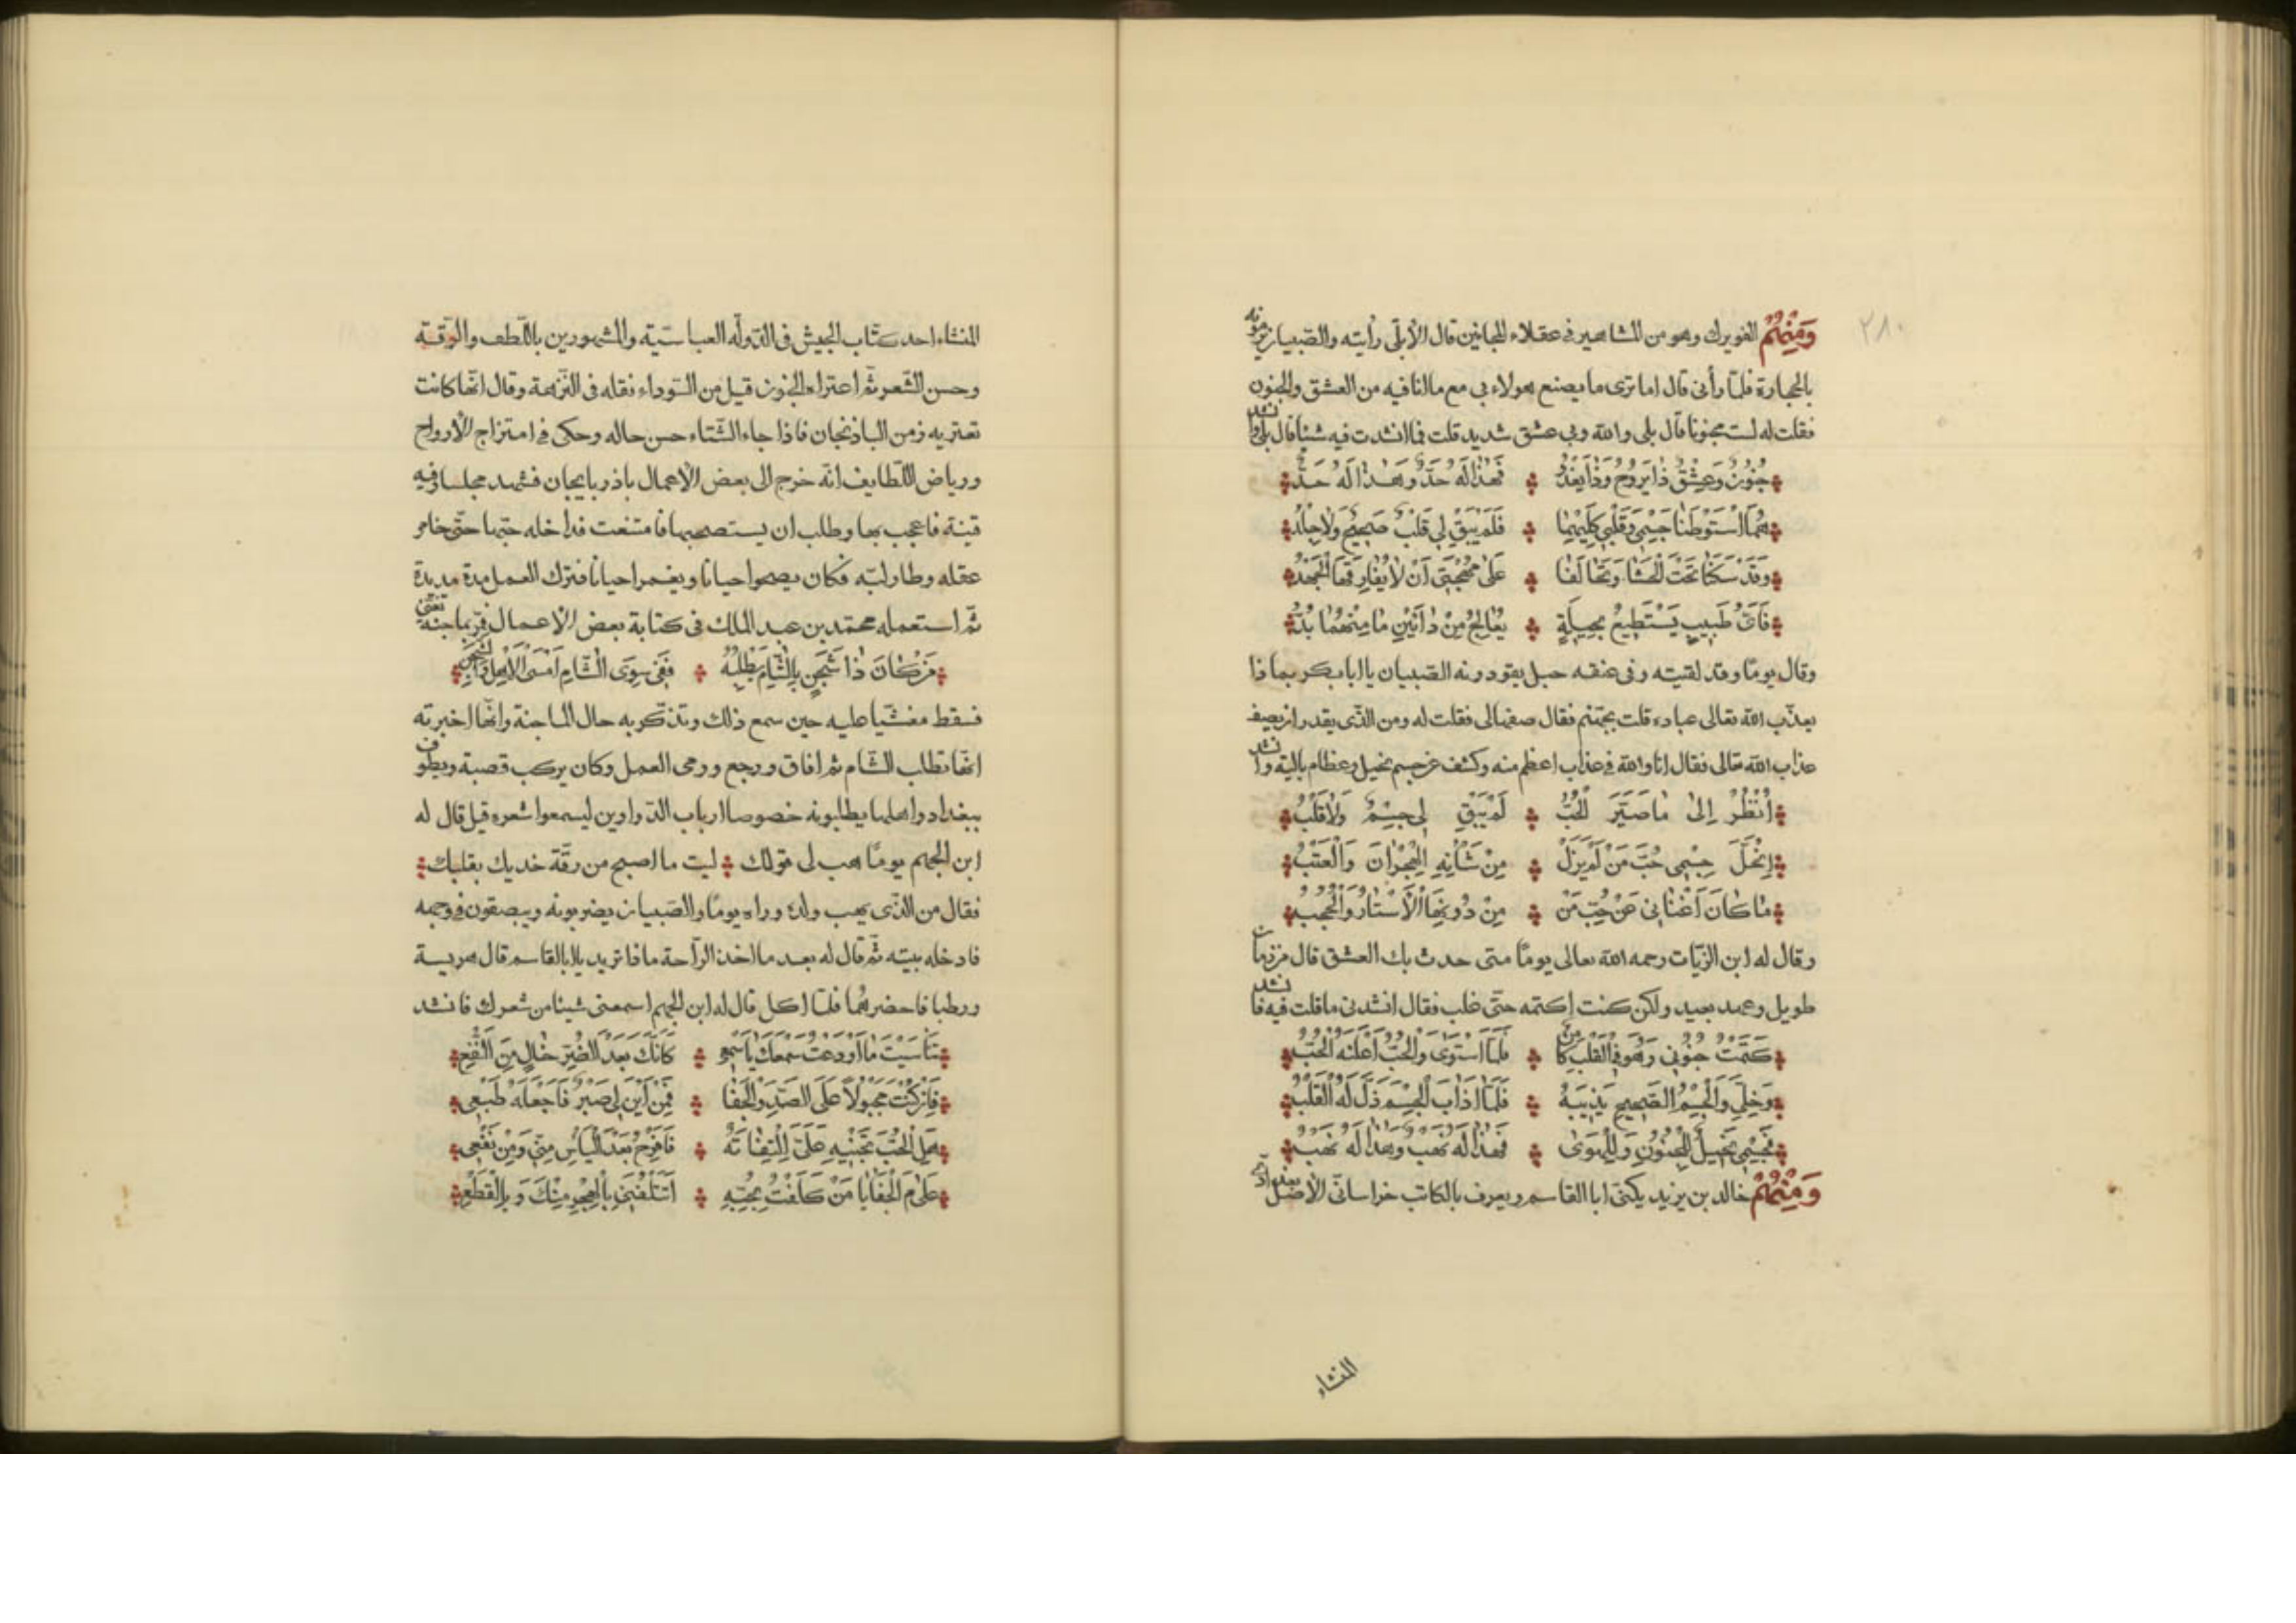 ٢٨٠
وَمِنْهُمْ الغويرك وهو من المشاهير فى عقلاء المجانين قال الأبلّى رأيته والصّبيان يرمونه
بالحجارة فلمّا رأنى قال اما ترى ما يصنع هولاء بى مع مالنا فيه من العشق والجنون
فقلت له لست مجنونا قال بلى والله وبى عشق شديد قلت فما انشدت فيه شيئا قال بلى وانشد
جُنُونٌ وَعِشْقٌ ذَا يَرُوحُ وَذَا يَغْدُ ۞ فَهٰذَا لَهُ حَدٌّ وَهٰذَا لَهُ حَدٌّ
هُمَا اسْتَوْطَنَا جِسْمِى وَقَلْبِى كِلَيْهِمَا ۞ فَلَمْ يَبْقَ لِى قَلْبٌ صَحِيحٌ وَلَا جِلْدُ
وَقَدْ سَكَنَا تَحْتَ الْحَشَا وَتَحَالَفَا ۞ عَلٰى مُهْجَتِى اَنْ لَا يُفَارِقَهَا الْجَهْدُ
فَاَىُّ طَبِيبٍ يَسْتَطِيعُ بِحِيلَةٍ ۞ يُعَالِجُ مِنْ دَائَيْنِ مَا مِنْهُمَا بُدُّ
وقال يومًا وقد لقيته وفى عنقه حبل يقودونه الصّبيان يا ابا بكر بما ذا
يعذّب الله تعالى عباده قلت بجهنّم فقال صفها لى فقلت له ومن الّذى يقدر ان يصف
عذاب الله تعالى فقال انا والله فى عذاب اعظم منه وكشف عن جسم نحيل وعظام بالية وانشد
اُنْظُرْ اِلٰى مَا صَيَّرَ الْحُبُّ ۞ لَمْ يَبْقِ لِى جِسْمٌ وَلَا قَلْبُ
اِنْحَلَّ جِسْمِى حُبَّ مَنْ لَمْ يَزَلْ ۞ مِنْ شَأْنِهِ الْهِجْرَانَ وَالْعَتْبُ
مَا كَانَ اَغْنَانِى عَنْ حُبِّ مَنْ ۞ مِنْ دُونِهَا الْاَسْتَارُ وَالْحُجُبُ
وقال له ابن الزيّات رحمه الله تعالى يومًا متى حدث بك العشق قال من زمان
طويل وعهد بعيد ولكن كنت اكتمه حتّى غلب فقال انشدنى ما قلت فيه فانشد
كَتَمْتُ جُنُونِى وَهْوَ فِى الْقَلْبِ كَامِنٌ ۞ فَلَمَّا اسْتَوٰى وَالْحُبُّ اَعْلَنَهُ الْحُبُّ
وَخِلِّى وَالْجِسْمُ الصَّحِيحِ يُذِيبُهُ ۞ فَلَمَّا اَذَابَ الْجِسْمَ ذَلَّ لَهُ الْقَلْبُ
فَجِسْمِى نَحِيلٌ لِلْجُنُونِ وَلِلْهَوٰى ۞ فَهٰذَا لَهُ نَهْبٌ وَهٰذَا لَهُ نَهْبُ
وَمِنْهُمْ خالد بن يزيد يكنى ابا القاسم ويعرف بالكاتب خراسانىّ الأصل بغدادىّ
المنشاء
المنشاء احد كتّاب الجيش فى الدّولة العباسيّة والمشهورين باللّطف والرّقّة
وحسن الشّعر ثمّ اعتراه الجنون قيل من السّوداء نقله فى النّزهة وقال انّها كانت
تعتريه زمن الباذنجان فاذا جاء الشّتاء حسن حاله وحكى فى امتزاج الأرواح
ورياض اللّطايف انّه خرج الى بعض الأعمال باذربايجان فشهد مجلسا وفيه
قينة فاعجب بها وطلب ان يستصحبها فامتنعت فداخله حبّها حتّى خامر
عقله وطار لبّه فكان يصحوا حيانا ويغمر احيانا فترك العمل مدة مديدة
ثمّ استعمله محمّد بن عبد الملك فى كتابة بعض الأعمال فمرّ بماجنة تغنّى
مَنْ كَانَ ذَا شَجَنٍ بِالشَّامِ يَطْلُبُهُ ۞ فَفِى سِوَى الشَّامِ اَمْسَى الْاَهْلُ وَالشَّجَنُ
فسقط مغشّيا عليه حين سمع ذلك وتذكّر به حال الماجنة وانّها اخبرته
انّها تطلب الشّام ثمّ افاق ورجع ورمى العمل وكان يركب قصبة ويطوف
ببغداد واهلها يطلبونه خصوصا ارباب الدّواوين ليسمعوا شعره قيل قال له
ابن الجهم يومًا هب لى قولك ۞ ليت ما اصبح من رقّة خديك بقلبك
فقال من الّذى يهب ولده وراه يومًا والصّبيان يضربونه ويبصقون فى وجهه
فادخله بيته ثمّ قال له بعد ما اخذ الرّاحة ماذا تريد يا ابا القاسم قال هريسة
ورطبا فاحضرهُما فلمّا اكل قال له ابن الجهم اسمعنى شيئا من شعرك فانشد
تَنَاسَيْتَ مَا اَوْدَعْتُ سَمْعَكَ يَا سَمْعِى ۞ كَاَنَّكَ بَعْدَ الضُّرِّ خَالٍ مِنَ النَّفْعِ
فَاِنْ كُنْتَ مَجْبُولًا عَلَى الصَّدِّ وَالْجَفَا ۞ فَمِنْ اَيْنَ لِى صَبْرٌ فَاَجْعَلَهُ طَبْعِى
هَلِ الْحُبُّ تَجْنِيهِ عَلَىَّ الْتِفَاتَهُ ۞ فَافْرَحُ بَعْدَ الْيَأْسِ مِنِّى وَمِنْ نَفْعِى
عَلٰى مَ الْجَفَا يَا مَنْ كَلَفْتُ بِحُبِّهِ ۞ اَتُتْلِفُنِى بِالْهَجْرِ مِنْكَ وَبِالْقَطْعِ